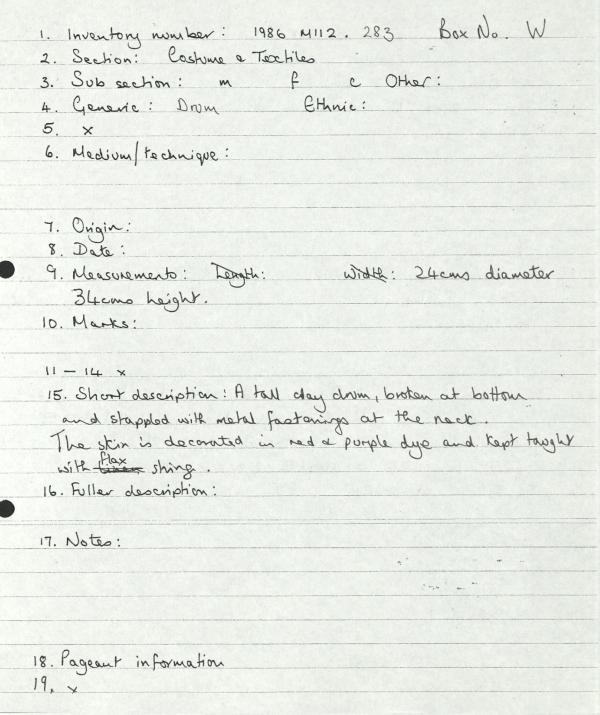 1. Inventory number: 1986 M112. 283 Box No. W
2. Section: Costume & Textiles
3. Sub section: m f c Other:
4. Generic: Drum Ethnic:
5. x
6. Medium/technique:
7. Origin:
8. Date:
9. Measurements: Length: width: 24cms diameter
34cms height.
10. Marks:
11 - 14 x
15. Short description: A tall clay drum, broken at bottom
and stappled with metal fastenings at the neck.
The skin is decorated in red & purple dye and kept taught
with flax string.
16. Fuller description:
17. Notes:
18. Pageant information
19. x